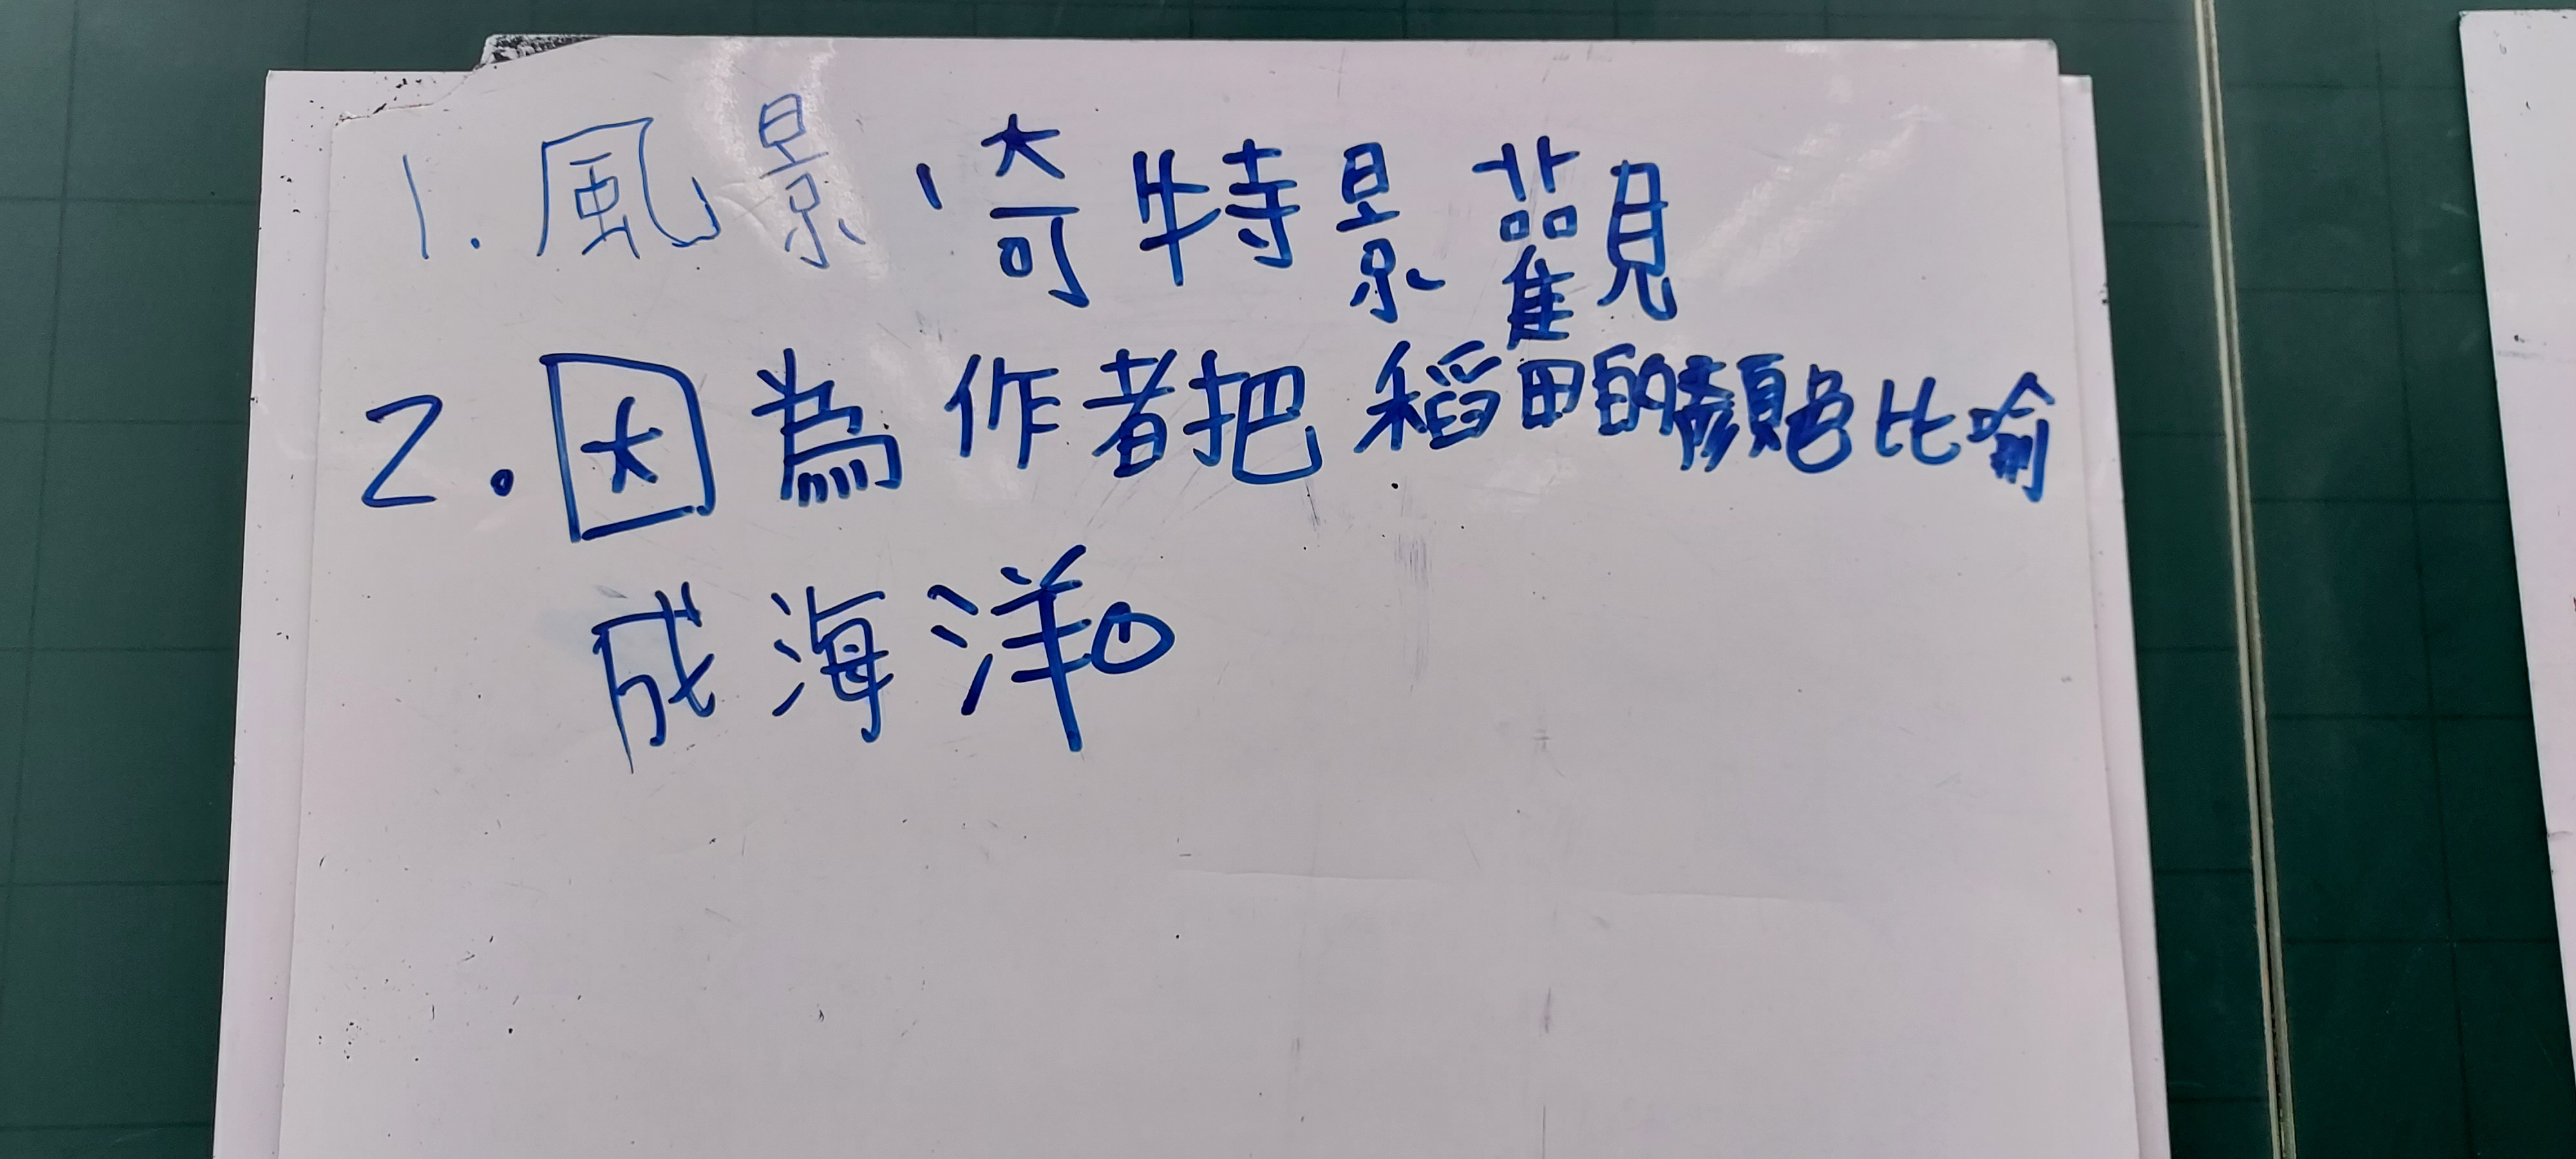 1.風景、奇特景觀
2.因為作者把稻田的顏色比喻
成海洋。